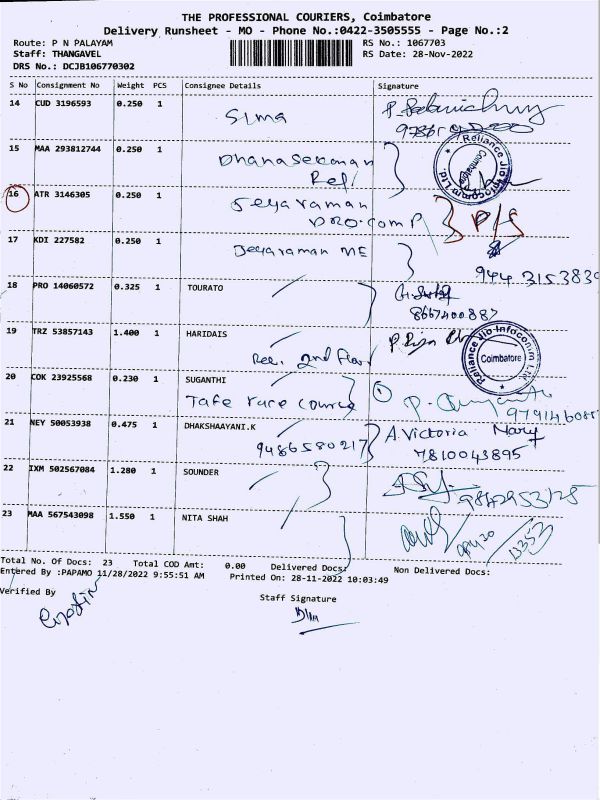 THE PROFESSIONAL COURIERS, Coimbatore
Delivery Runsheet - MO - Phone No.:0422-3505555 - Page No.:2
Route: P N PALAYAM
RS No.: 1067703
Staff: THANGAVEL
RS Date: 28-Nov-2022
DRS No.: DCJB106770302
S No Consignment No Weight PCS Consignee Details Signature
14 CUD 3196593 0.250 1 Sima
15 MAA 293812744 0.250 1 Dhanasekaran
Rel/
Reliance Jio Infocomm Ltd.
Coimbatore
16 ATR 3146305 0.250 1 Jeyaraman
PRO.comp
17 KDI 227582 0.250 1 Jeyaraman ME
944 3153839
18 PRO 14060572 0.325 1 TOURATO
8667400887
19 TRZ 53857143 1.400 1 HARIDAIS
Rec. 2nd floor
Reliance Jio Infocomm Ltd.
Coimbatore
20 COK 23925568 0.230 1 SUGANTHI
Tafe race course
21 NEY 50053938 0.475 1 DHAKSHAAYANI.K A.Victoria Mary
9486580217 7810043895
22 IXM 502567084 1.280 1 SOUNDER
23 MAA 567543098 1.550 1 NITA SHAH
13352
Total No. Of Docs: 23 Total COD Amt: 0.00 Delivered Docs: Non Delivered Docs:
Entered By :PAPAMO 11/28/2022 9:55:51 AM Printed On: 28-11-2022 10:03:49
Verified By
Staff Signature